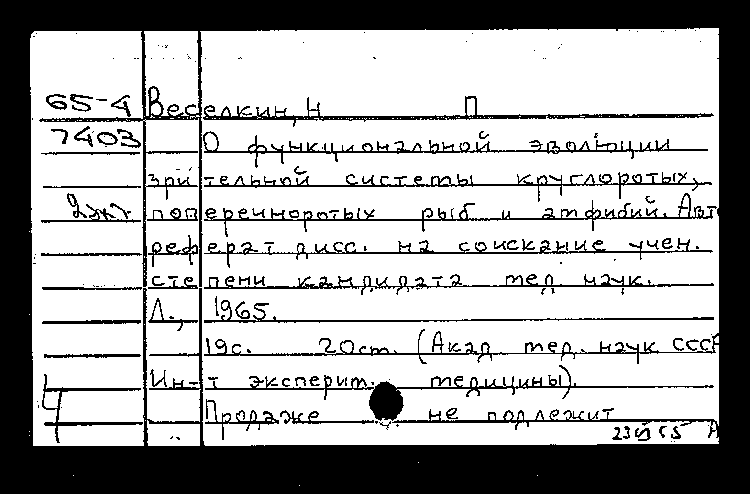 65-4 Веселкин, Н П
7403 О функциональной эволюции
зрительной системы круглоротых,
2экз поперечноротых рыб и амфибий. Авто
реферат дисс. на соискание учен.
степени кандидата мед. наук.
Л., 1965.
19с. 20см. (Акад мед. наук СССР
Ин-т эксперим. медицины).
Ч Продаже не подлежит